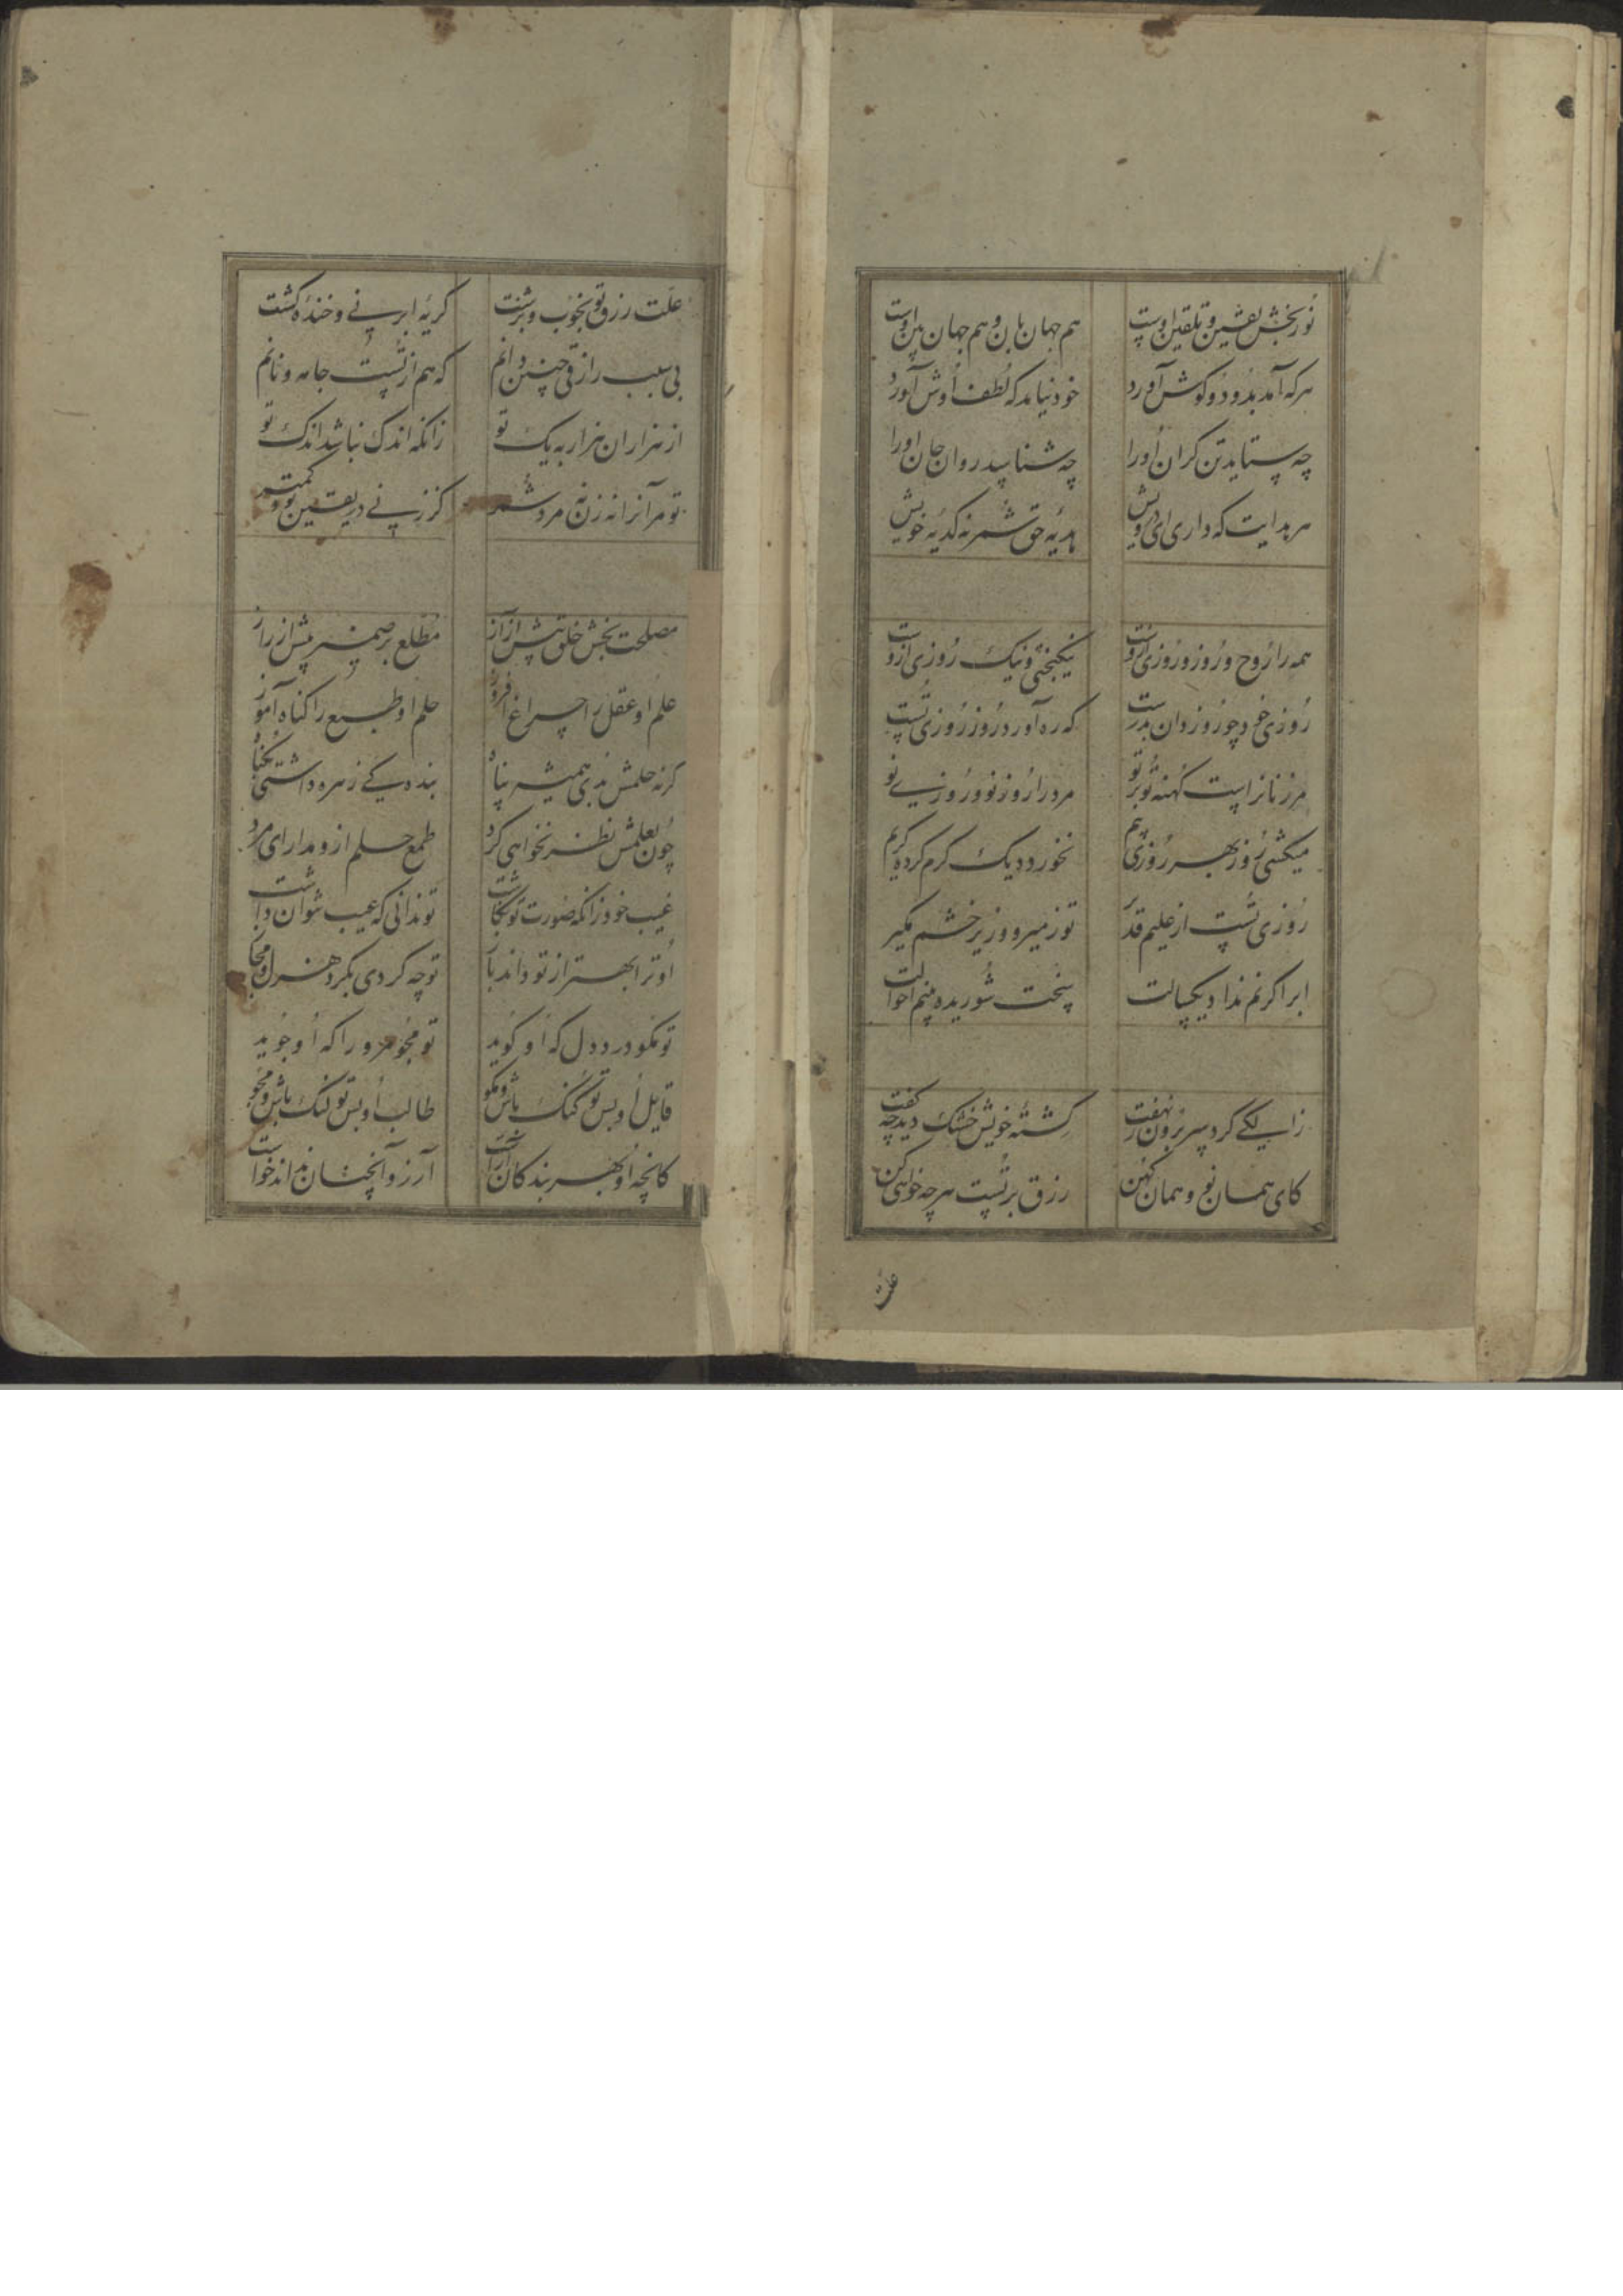 نور بخش یقین و تلقین اوست هم جهان بان و هم جهان بین اوست
هرکه آمد بدو و کوش آورد خود نیامد که لطف اوش آورد
چه ستاید تن کران او را چه شناسد روان جان او را
هر هدایت که داری ای درویش هدیهٔ حق شمر نه کدیهٔ خویش
همه را روح و روز و روزی ازوست نیکبختی و نیک روزی ازوست
روزی خود چو روز دان بدرست که ره آورد روز روزی تست
مر زنانراست کهنه تو بر تو مرد را روز نو و روزی نو
میکشی روز بهر روزی هم نخورد دیک کرم کرده کریم
روزی تست از علیم قدیر تو ز میر و وزیر خشم مکیر
ابر اکر نم نداد یکسالت سخت شوریده بینم احوالت
زالکی کرد سر برون ز نهفت کشتهٔ خویش خشک دید چه کفت
کای همان نو و همان کهن رزق بر تست هرچه خواهی کن
علت
علت رزق تو بخوب و بزشت کریهٔ ابر نی و خندهٔ کشت
بی سبب رازقی چنین دانم که هم از تست جامه و نانم
از هزاران هزار به یک تو زانکه اندک نباشد اندک تو
تو مر آنرا نه زن نه مرد شمر کز زنی در یقین تو کمتر
مصلحت بخش خلق پیش از آز مطلع بر ضمیر پیش از راز
علم او عقل را چراغ افروز حلم او طبع را کناه آموز
کر نه حلمش بدی همیشه پناه بنده کی زهره داشتی بکناه
چون بعلمش نظر نخواهی کرد طمع حلم ازو مدار ای مرد
غیب خود زانکه صورت تو نکاشت تو ندانی که عیب نتوان داشت
او ترا بهتر از تو داند باز تو چه کردی بکرد هزل و مجاز
تو مکو درد دل که او کوید تو مجو مرو را که او جوید
قایل او بس تو کنک باش و مکو طالب او بس تو لنک باش و مجو
کانچه او بهر بندکان آراست آرزو آنچنان نداند خواست